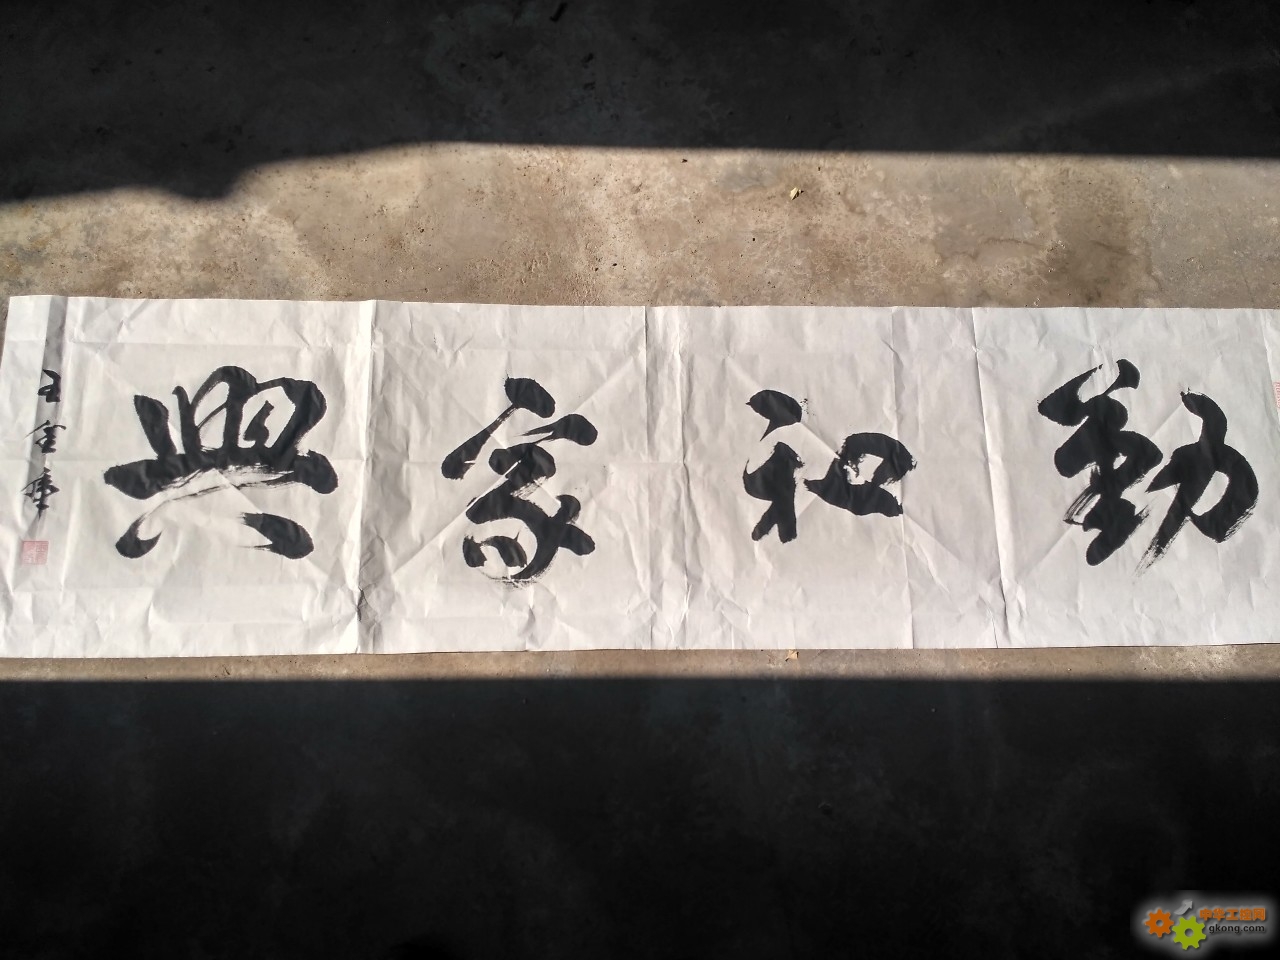 勤和家興
王
中华工控网
gkong.com